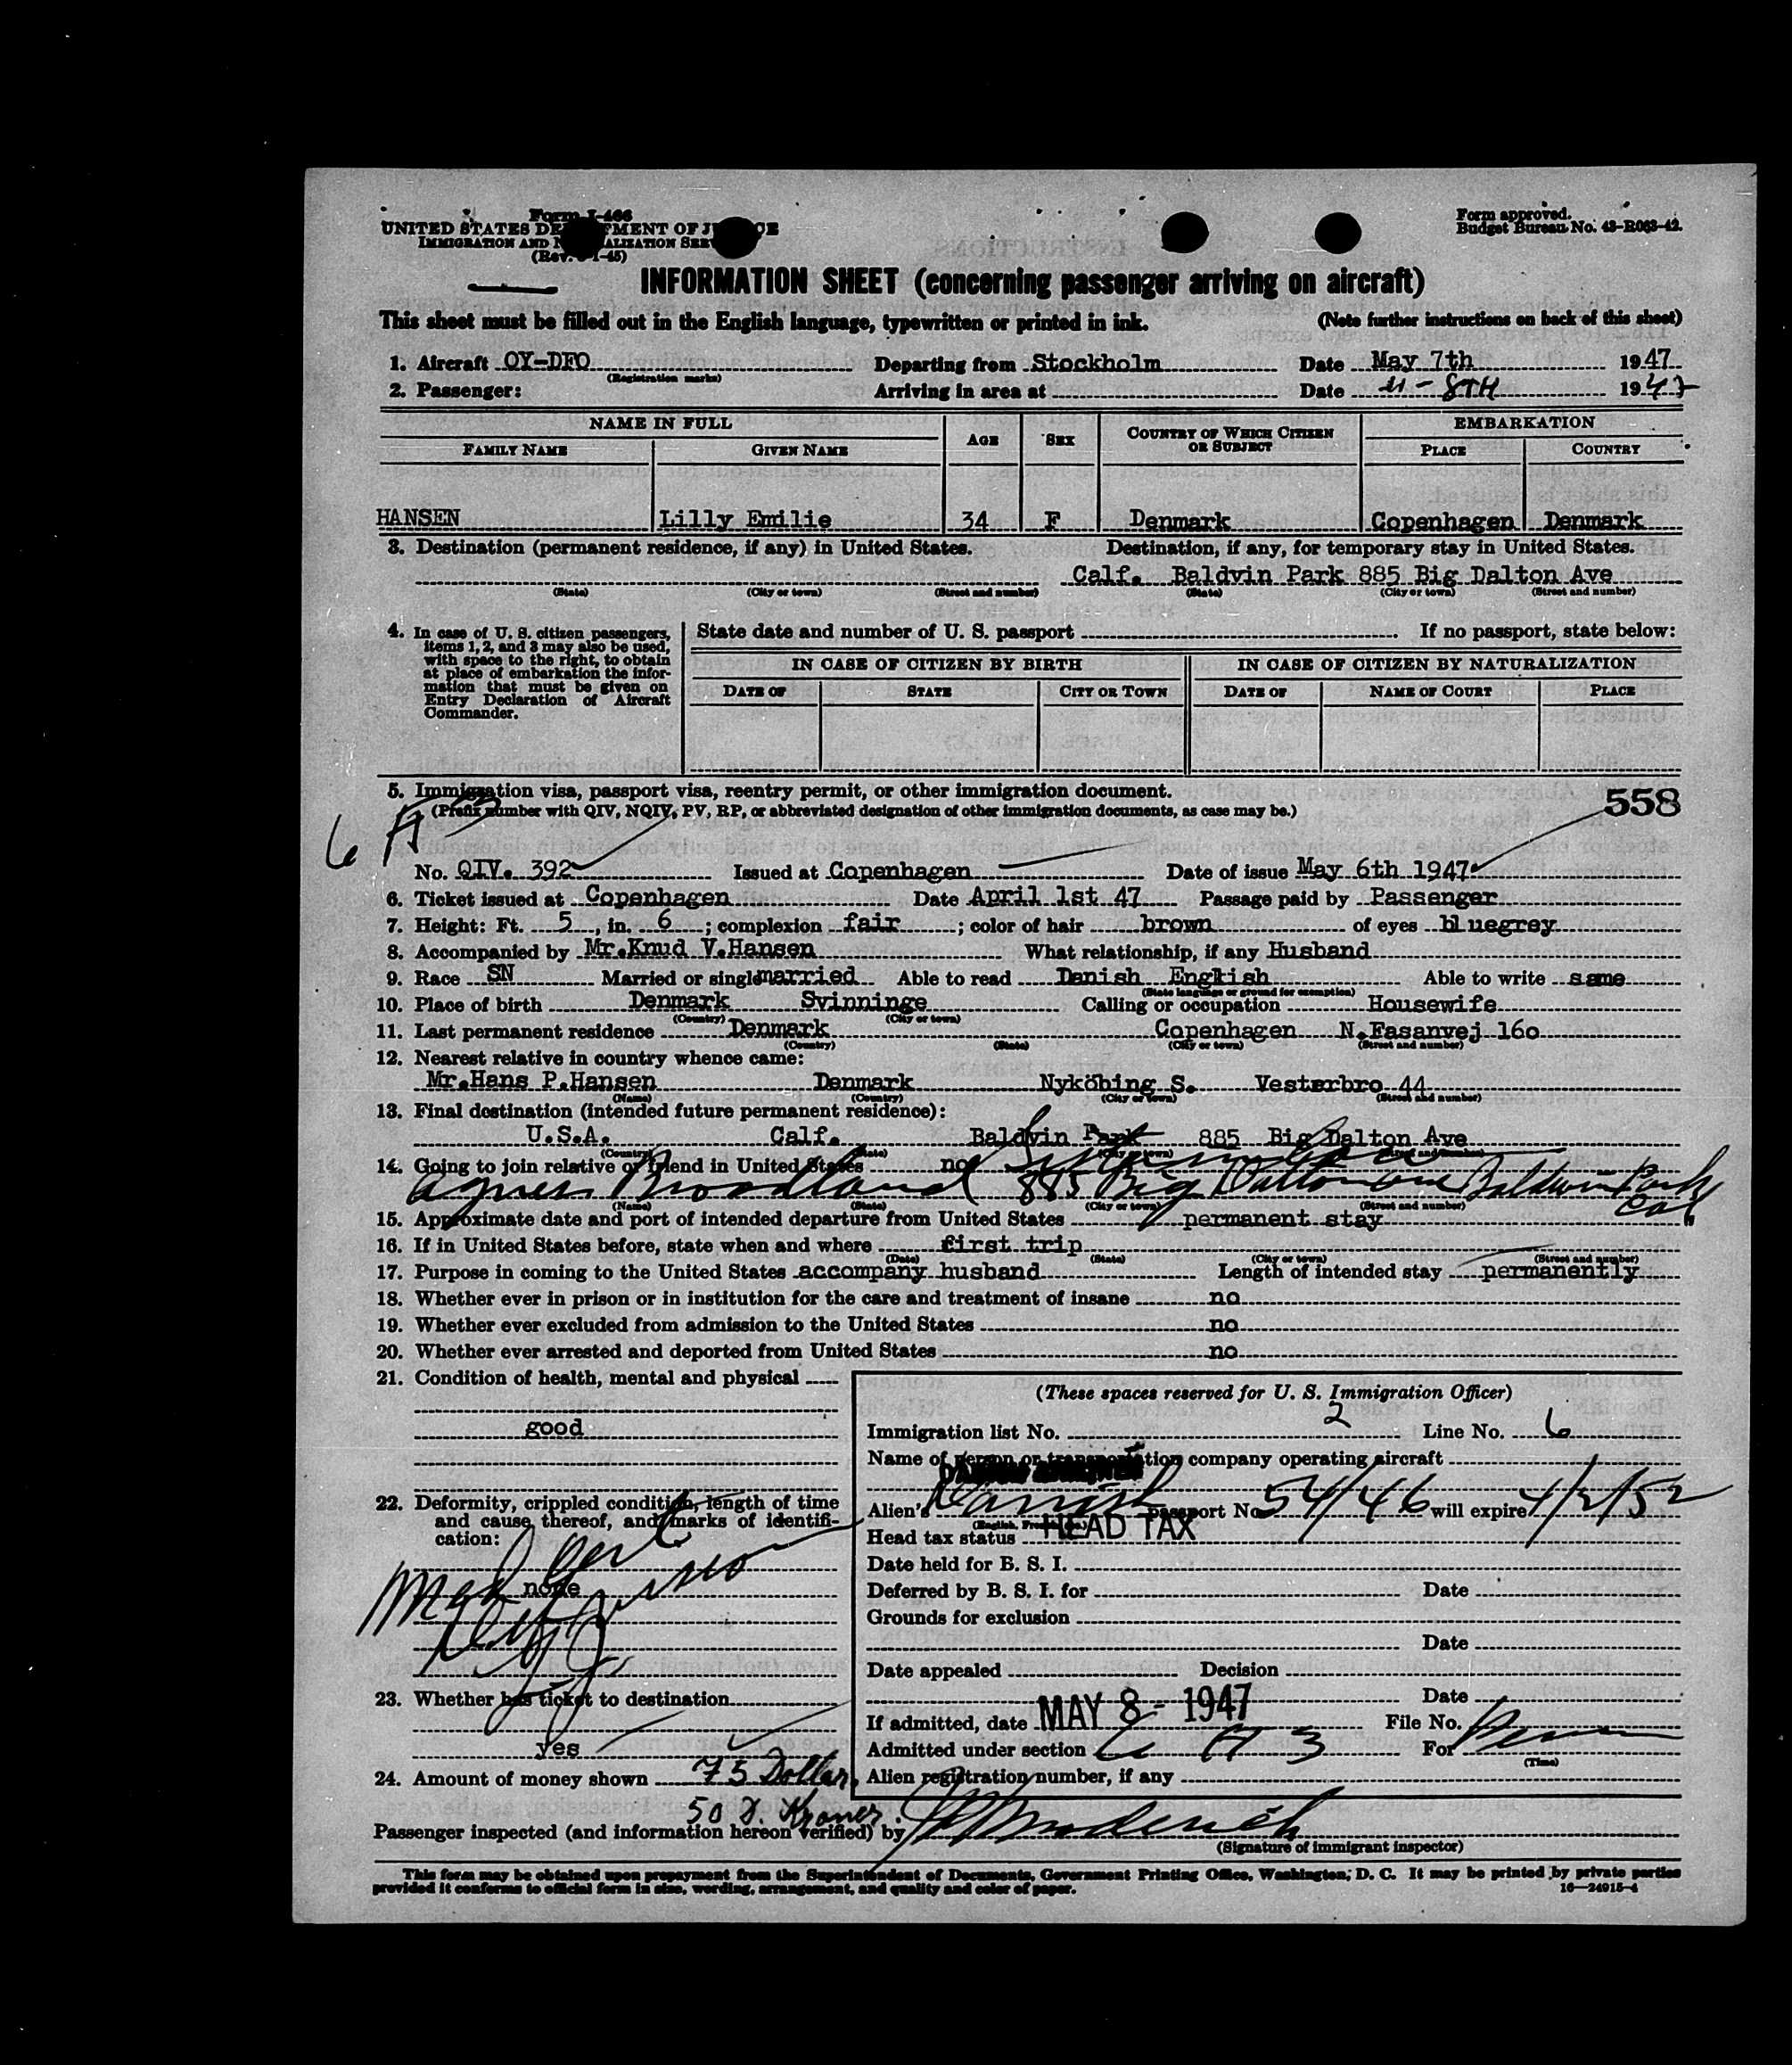 Form I-466
UNITED STATES DEPARTMENT OF JUSTICE
IMMIGRATION AND NATURALIZATION SERVICE
(Rev. 1-45)
Form approved.
Budget Bureau No. 43-R063-42.
INFORMATION SHEET (concerning passenger arriving on aircraft)
This sheet must be filled out in the English language, typewritten or printed in ink. (Note further instructions on back of this sheet)
1. Aircraft OY-DFO Departing from Stockholm Date May 7th 1947
(Registration marks)
2. Passenger: Arriving in area at Date 8TH 1947
NAME IN FULL AGE SEX COUNTRY OF WHICH CITIZEN OR SUBJECT EMBARKATION
FAMILY NAME GIVEN NAME PLACE COUNTRY
HANSEN Lilly Emilie 34 F Denmark Copenhagen Denmark
3. Destination (permanent residence, if any) in United States. Destination, if any, for temporary stay in United States.
Calf. Baldvin Park 885 Big Dalton Ave
(State) (City or town) (Street and number) (State) (City or town) (Street and number)
4. In case of U. S. citizen passengers, items 1, 2, and 3 may also be used, with space to the right, to obtain at place of embarkation the information that must be given on Entry Declaration of Aircraft Commander.
State date and number of U. S. passport If no passport, state below:
IN CASE OF CITIZEN BY BIRTH IN CASE OF CITIZEN BY NATURALIZATION
DATE OF STATE CITY OR TOWN DATE OF NAME OF COURT PLACE
5. Immigration visa, passport visa, reentry permit, or other immigration document.
(Prefix number with QIV, NQIV, PV, RP, or abbreviated designation of other immigration documents, as case may be.)
558
6 A 3
No. QIV. 392 Issued at Copenhagen Date of issue May 6th 1947
6. Ticket issued at Copenhagen Date April 1st 47 Passage paid by Passenger
7. Height: Ft. 5, in. 6; complexion fair; color of hair brown of eyes bluegrey
8. Accompanied by Mr.Knud V.Hansen What relationship, if any Husband
9. Race SN Married or single married Able to read Danish English Able to write same
(State language or ground for exemption)
10. Place of birth Denmark Svinninge Calling or occupation Housewife
(Country) (City or town)
11. Last permanent residence Denmark Copenhagen N.Fasanvej 16o
(Country) (State) (City or town) (Street and number)
12. Nearest relative in country whence came:
Mr.Hans P.Hansen Denmark Nyköbing S. Vesterbro 44
(Name) (Country) (City or town) (Street and number)
13. Final destination (intended future permanent residence):
U.S.A. Calf. Baldvin Park 885 Big Dalton Ave
(Country) (State) (City or town) (Street and number)
14. Going to join relative or friend in United States no
Agnes Broodland 885 Big Dalton Ave Baldwin Park Cal
(Name) (State) (City or town) (Street and number)
15. Approximate date and port of intended departure from United States permanent stay
16. If in United States before, state when and where first trip
(Date) (State) (City or town) (Street and number)
17. Purpose in coming to the United States accompany husband Length of intended stay permanently
18. Whether ever in prison or in institution for the care and treatment of insane no
19. Whether ever excluded from admission to the United States no
20. Whether ever arrested and deported from United States no
21. Condition of health, mental and physical
good
22. Deformity, crippled condition, length of time and cause thereof, and marks of identification:
none
23. Whether has ticket to destination
yes
24. Amount of money shown 75 Dollar
50 D. Kroner
(These spaces reserved for U. S. Immigration Officer)
Immigration list No. 2 Line No. 6
Name of person or transportation company operating aircraft
Alien's Danish passport No. 54/46 will expire 4/2/52
Head tax status HEAD TAX
Date held for B. S. I.
Deferred by B. S. I. for Date
Grounds for exclusion
Date
Date appealed Decision
Date
If admitted, date MAY 8 - 1947 File No.
Admitted under section 6 A 3 For Perm
(Time)
Alien registration number, if any
Passenger inspected (and information hereon verified) by
(Signature of immigrant inspector)
This form may be obtained upon prepayment from the Superintendent of Documents, Government Printing Office, Washington, D. C. It may be printed by private parties
provided it conforms to official form in size, wording, arrangement, and quality and color of paper.
16—24915-4